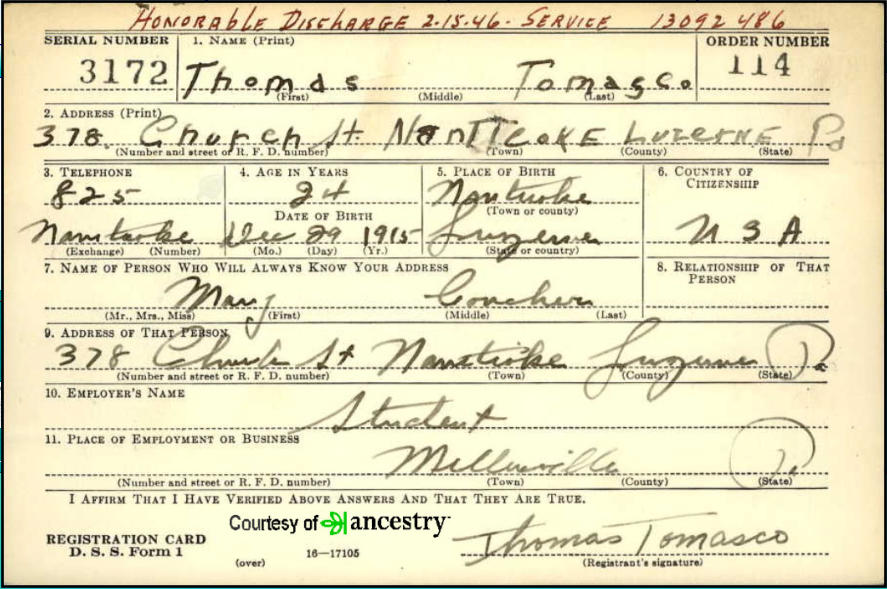 HONORABLE DISCHARGE 2-15-46- SERVICE 13092486
SERIAL NUMBER 1. NAME (Print) ORDER NUMBER
3172 Thomas Tomasco 114
(First) (Middle) (Last)
2. ADDRESS (Print)
378. Church St. NANTICOKE LUZERNE Pa
(Number and street or R. F. D. number) (Town) (County) (State)
3. TELEPHONE 4. AGE IN YEARS 5. PLACE OF BIRTH 6. COUNTRY OF CITIZENSHIP
825 24 Nanticoke
DATE OF BIRTH (Town or county)
Nanticoke Dec 29 1915 Luzerne U S A
(Exchange) (Number) (Mo.) (Day) (Yr.) (State or country)
7. NAME OF PERSON WHO WILL ALWAYS KNOW YOUR ADDRESS 8. RELATIONSHIP OF THAT PERSON
Mary
(Mr., Mrs., Miss) (First) (Middle) (Last)
9. ADDRESS OF THAT PERSON
378 Church St Nanticoke Luzerne Pa
(Number and street or R. F. D. number) (Town) (County) (State)
10. EMPLOYER'S NAME
Student
11. PLACE OF EMPLOYMENT OR BUSINESS
Millersville Pa
(Number and street or R. F. D. number) (Town) (County) (State)
I AFFIRM THAT I HAVE VERIFIED ABOVE ANSWERS AND THAT THEY ARE TRUE.
Courtesy of ancestry
REGISTRATION CARD Thomas Tomasco
D. S. S. Form 1 16—17105
(over) (Registrant's signature)